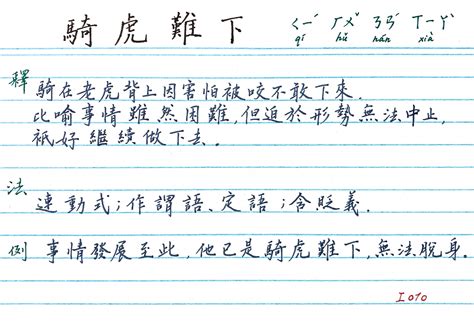 騎虎難下 ㄑㄧˊ ㄏㄨˇ ㄋㄢˊ ㄒㄧㄚˋ
qí hǔ nán xià
釋 騎在老虎背上因害怕被咬不敢下來.
比喻事情雖然困難,但迫於形勢無法中止,
祇好繼續做下去.
法 連動式;作謂語、定語;含貶義.
例 事情發展至此,他已是騎虎難下,無法脫身.
I010